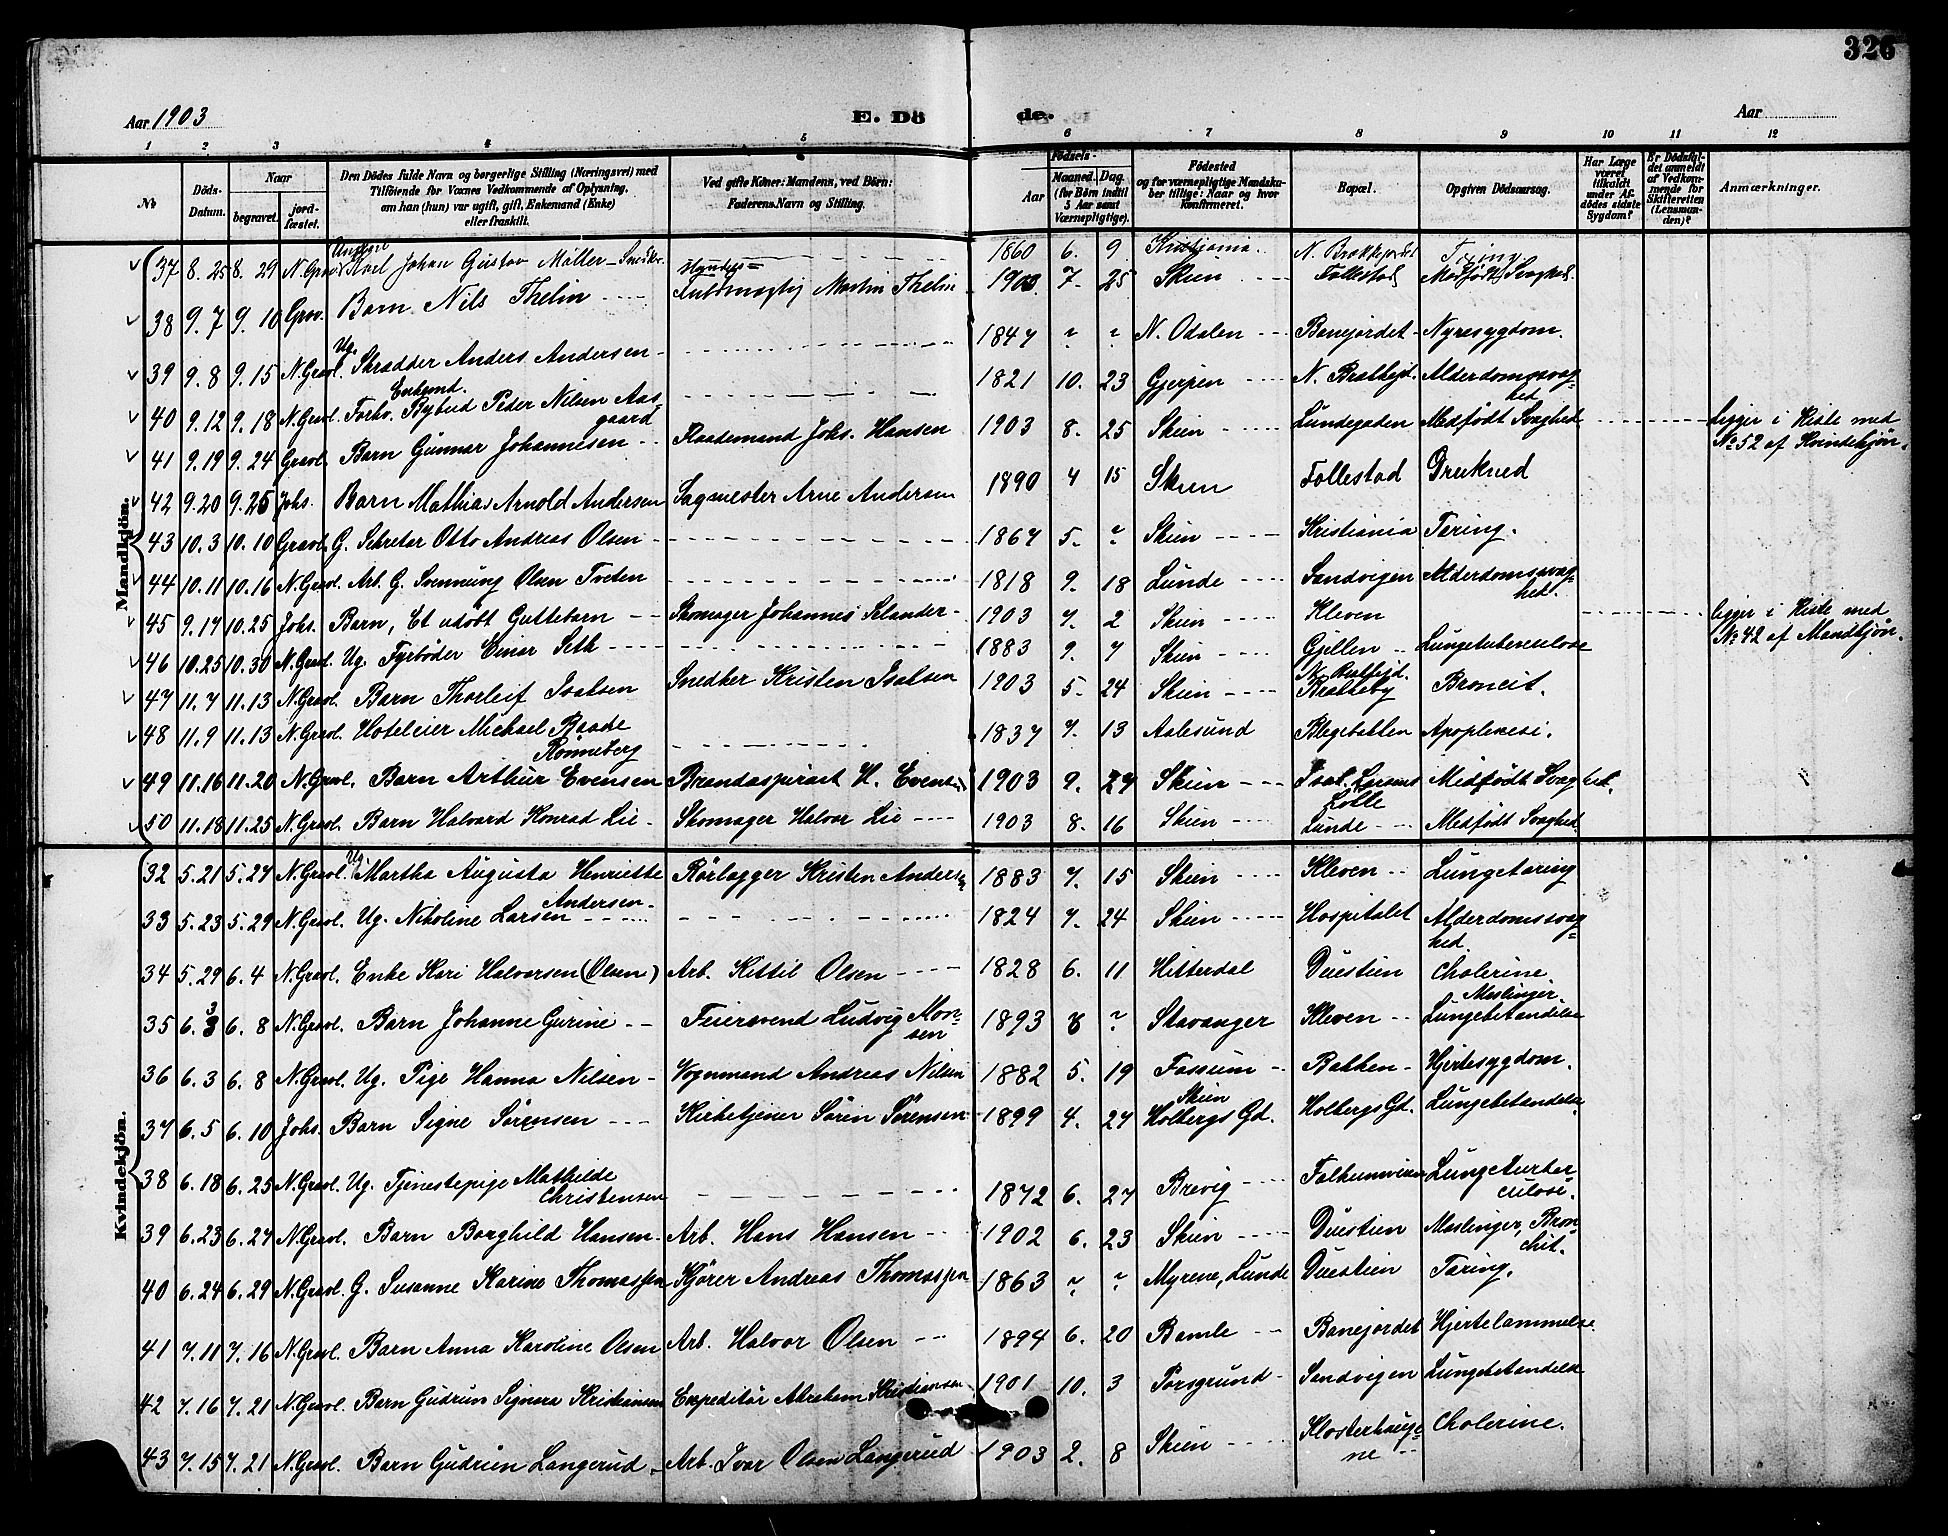 326
Aar 1903
E. Dö de.
Aar
1 2 3 4 5 6 7 8 9 10 11 12
№
Döds-Datum.
Naar begravet. jordfæstet.
Den Dödes fulde Navn og borgerlige Stilling (Næringsvei) med Tilföiende for Voxnes Vedkommende af Oplysning, om han (hun) var ugift, gift, Enkemand (Enke) eller fraskilt.
Ved gifte Koner: Mandens, ved Börn: Faderens Navn og Stilling.
Födsels-
Aar Maaned. Dag. (for Börn indtil 5 Aar samt Værnepligtige).
Födested og for værnepligtige Mandskaber tillige: Naar og hvor Konfirmeret.
Bopæl.
Opgiven Dödsaarsag.
Har Læge været tilkaldt under Afdödes sidste Sygdom?
Er Dödsfaldet anmeldt af Vedkommende for Skifteretten (Lensmanden)?
Anmærkninger.
Mandkjön.
37 8. 25 8. 29 N. Grav Johan Gustav Möller – 1860 6. 9 Kristiania.
38 9. 7 9. 10 Grav. Barn Nils Thelin Martin Thelin 1903 7. 25 Skien Follestad Medfödt Svaghed.
39 9. 8 9. 15 N. Gravl. Ug. Skrædder Anders Andersen 1847 ? ? N. Odalen Banejordet Nyresygdom.
40 9. 12 9. 18 N. Gravl. Enkemd. Forhv. Bybud Peder Nilsen Aasgaard 1821 10. 23 Gjerpen N. Alderdomssvaghed
41 9. 19 9. 24 Gravl. Barn Gunnar Johannesen Raademand Johs. Hansen 1903 8. 25 Skien Lundegaden Medfödt Svaghed ligger i Kiste med № 52 af Kvindekjön.
42 9. 20 9. 25 Johs. Barn Mathias Arnold Andersen Sagmester Arne Andersen 1890 4 15 Skien Follestad Drukned
43 10. 3 10. 10 Gravl. G. Sekretær Otto Andreas Olsen 1867 5. ? Skien Kristiania Tæring.
44 10. 11 10. 16 N. Gravl. Arb. G. Svennung Olsen Tveten 1818 9. 18 Lunde Sandvigen Alderdomssvaghed.
45 9. 17 10. 25 Johs. Barn, Et udöbt Guttebarn Skomager Johannes Selander 1903 7. 2 Skien Kleven ligger i Kiste med № 42 af Mandkjön.
46 10. 25 10. 30 N. Gravl. Ug. Fyrböder Einar Seth 1883 9. 7 Skien Gjellen Lungetuberculose
47 11. 7 11. 13 N. Gravl. Barn Thorleif Isaksen Snedker Kristen Isaksen 1903 5. 24 Skien Bratteby Broncit.
48 11. 9 11. 13 N. Gravl. Hoteleier Michael Raade Rönneberg 1837 7. 13 Aalesund Blegebakken Apoplexesi.
49 11. 16 11. 20 N. Gravl. Barn Arthur Evensen Brandaspirant H. Evensen 1903 9. 27 Skien Lökke Medfödt Svaghed.
50 11. 18 11. 25 N. Gravl. Barn Halvard Konrad Lie Skomager Halvor Lie 1903 8. 16 Skien Lunde Medfödt Svaghed
Kvindekjön.
32 5. 21 5. 27 N. Gravl. Ug. Martha Augusta Henriette Andersen Rörlægger Kristen Andersen 1883 7. 15 Skien Kleven Lungetæring
33 5. 23 5. 29 N. Gravl. Ug. Nikoline Larsen 1824 7. 24 Skien Hospitalet Alderdomssvaghed
34 5. 29 6. 4 N. Gravl. Enke Kari Halvorsen (Olsen) Arb. Kittil Olsen 1828 6. 11 Hitterdal Duestien Cholerine
35 6. 3 6. 8 N. Gravl. Barn Johanne Gurine Feiersvend Ludvig Monsen 1893 8 ? Stavanger Kleven Meslinger. Lungebetændelse
36 6. 3 6. 8 N. Gravl. Ug. Pige Hanna Nilsen Vognmand Andreas Nilsen 1882 5. 19 Fossum Bakken Hjertesygdom.
37 6. 5 6. 10 Johs. Barn Signe Sørensen Kirketjener Sören Sørensen 1899 4. 27 Skien Holbergs Gd. Holbergs Gd. Lungebetændelse
38 6. 18 6. 25 N. Gravl. Ug. Tjenestepige Mathilde Christensen 1872 6. 27 Brevig Falkumveien Lungeturberculose.
39 6. 23 6. 27 N. Gravl. Barn Borghild Hansen Arb. Hans Hansen 1902 6. 23 Skien Duestien Meslinger, Bronchit.
40 6. 24 6. 29 N. Gravl. G. Susanne Karine Thomassen Kjörer Andreas Thomassen 1863 ? ? Myrene, Lunde Duestien Tæring.
41 7. 11 7. 16 N. Gravl. Barn Anna Karoline Olsen Arb. Halvor Olsen 1894 6. 20 Bamle Banejordet Hjertelammelse.
42 7. 16 7. 21 N. Gravl. Barn Gudrun Signora Kristiansen Expeditör Abraham Kristiansen 1901 10. 3 Porsgrund Sandvigen Lungebetændelse
43 7. 15 7. 21 N. Gravl. Barn Gudrun Langerud Arb. Ivar Olsen Langerud 1903 2. 8 Skien Klosterhaugene Cholerine.